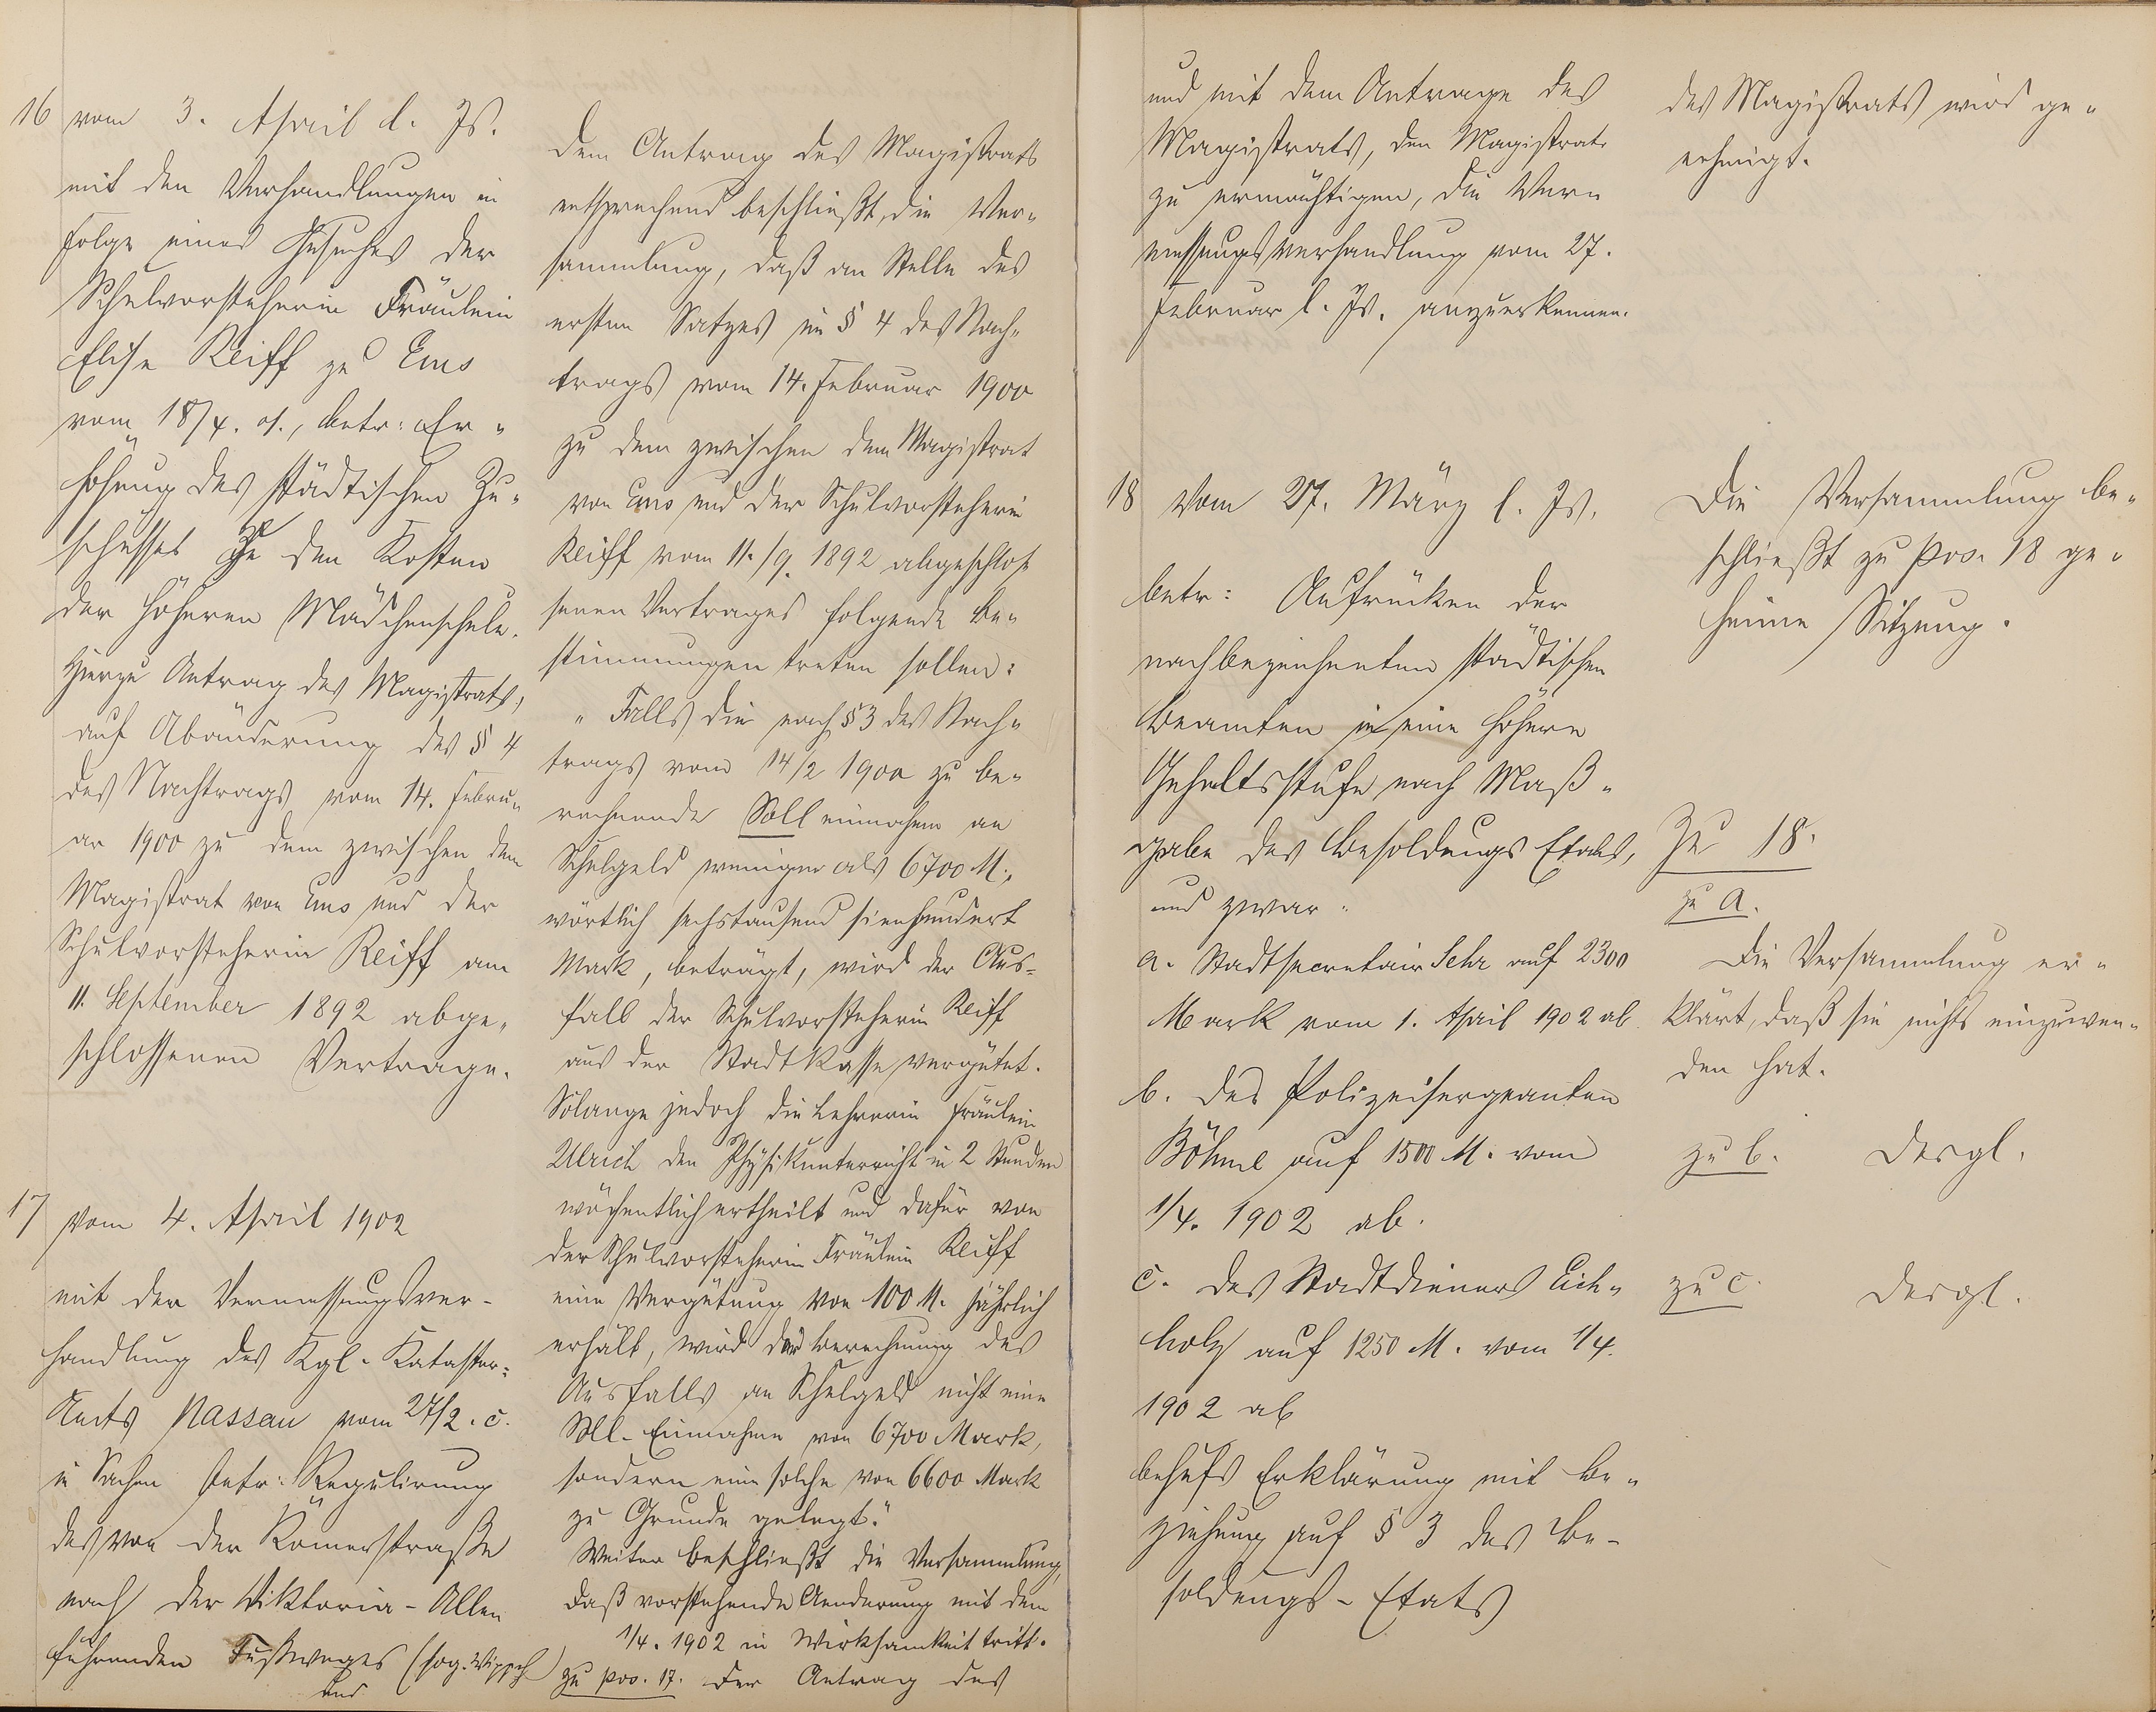 16 vom 3. April l. Js.
mit den Verhandlungen in
Folge eines Gesuches der
Schulvorsteherin Fräulein
Elise Reiff zu Ems
vom 18/4. 01., betr: Er„
höhung des städtischen Zu„
schusses zu den Kosten
der höheren Mädchenschule.
Hierzu Antrag des Magistrats,
auf Abänderung des § 4
des Nachtrags vom 14. Febru„
ar 1900 zu dem zwischen dem
Magistrat von Ems und der
Schulvorsteherin Reiff am
11. September 1892 abge„
schlossenen Vertrage.
17 vom 4. April 1902
mit der Vermessungsver-
handlung des Kgl. Kataster-
Amts Nassau vom 27/2. c.
in Sachen betr: Regulirung
des von der Römerstraße
nach der Viktoria-Allee
führenden Fußweges (sog.
und
Dem Antrag des Magistrats
entsprechend beschließt, die Ver„
sammlung, daß an Stelle des
ersten Satzes im § 4 des Nach„
trags vom 14. Februar 1900
zu dem zwischen dem Magistrat
von Ems und der Schulvorsteherin
Reiff vom 11./9. 1892 abgeschlos
senen Vertrages folgende Be„
stimmungen treten sollen:
„Falls die nach § 3 des Nach„
trags vom 14/2 1900 zu be„
rechnende Solleinnahme an
Schulgeld weniger als 6700 M.,
wörtlich sechstausend siebenhundert
Mark, beträgt, wird der Aus-
fall der Schulvorsteherin Reiff
aus der Stadtkasse vergütet.
Solange jedoch die Lehrerin Fräulein
Ulrich den Physikunterricht in 2 Stunden
wöchentlich ertheilt und dafür von
der Schulvorsteherin Fräulein Reiff
eine Vergütung von 100 M. jährlich
erhält, wird der Berechnung des
Ausfalls an Schulgeld nicht eine
Soll-Einnahme von 6700 Mark,
sondern eine solche von 6600 Mark
zu Grunde gelegt."
Weiter beschließt die Versammlung,
daß vorstehende Aenderung mit dem
1/4. 1902 in Wirksamkeit tritt.
zu pos. 17. Der Antrag des
und mit dem Antrage des
Magistrats, den Magistrat
zu ermächtigen, die Verm
essungsverhandlung vom 27.
Februar l. Js. anzuerkennen.
18 Vom 27. März l. Js.
betr: Aufrücken der
nachbezeichneten städtischen
Beamten in eine höhere
Gehaltsstufe nach Maß„
gabe des Besoldungs Etats,
und zwar:
a. Stadtsecretair Sehr auf 2300
Mark vom 1. April 1902 ab
b. des Polizeisergeanten
Böhme auf 1500 M. vom
1/4. 1902 ab.
c. des Stadtdieners Eich„
holz auf 1250 M. vom 1/4.
1902 ab
behufs Erklärung mit Be„
ziehung auf § 3 des Be-
soldungs-Etats
des Magistrats wird ge„
nehmigt.
Die Versammlung be„
schließt zu pos. 18 ge„
heime Sitzung.
Zu 18.
zu a.
Die Versammlung er„
klärt, daß sie nichts einzuwen„
den hat.
zu b. desgl.
zu c. desgl.